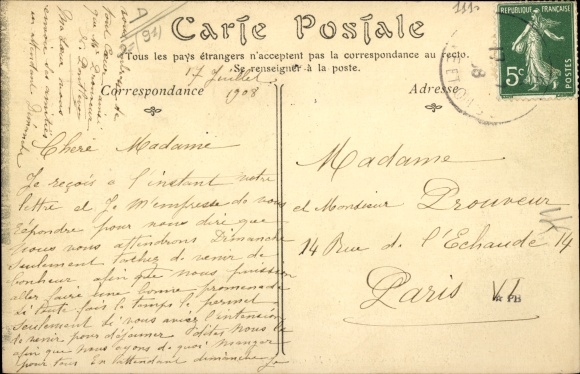 Carte Postale
Tous les pays étrangers n'acceptent pas la correspondance au recto.
Se renseigner à la poste.
Correspondance
Adresse
REPUBLIQUE FRANÇAISE
5c
POSTES
111.
A
(91)
17 Juillet
1908
Chere Madame
Je reçois a l'instant votre
lettre et Je M'empresse de vous
repondre pour vous dire que
nous vous attendrons Dimanche
Seulement tachez de venir de
bonheur afin que nous puissions
aller faire une bonne promenade
si toute fois le temps le permet
Seulement si vous aviez l'intention
de venir pour déjeuner dites nous le
afin que nous ayons de quoi manger
pour tous En attendant dimanche je
vous
que Mr Drouveur
nous
en attendant Dimanche
Madame
et Monsieur Drouveur
14 Rue de l'Echaudé 14
Paris VI
PB